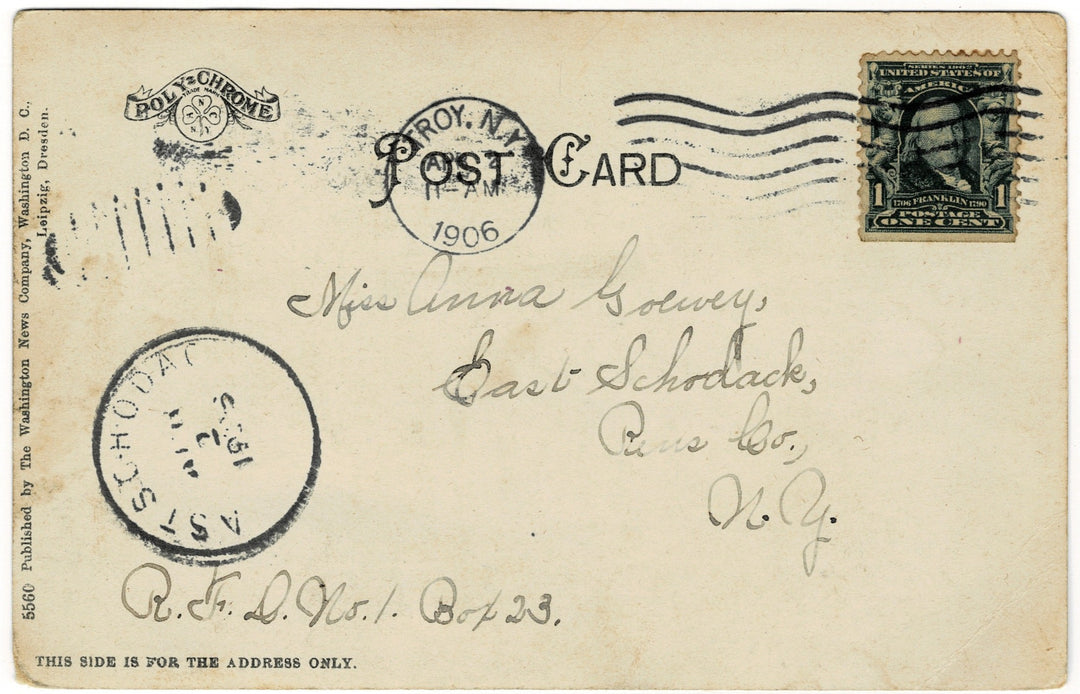 POLY-CHROME
TRADE MARK
POST CARD
TROY, N.Y.
11-AM
1906
SERIES 1902
UNITED STATES OF
AMERICA
1 1
1706 FRANKLIN 1790
POSTAGE
ONE CENT
Miss Anna Goewey,
East Schodack,
Rens Co.,
N. Y.
R. F. D. No. 1. Box 23.
AST SCHODAC
2
THIS SIDE IS FOR THE ADDRESS ONLY.
5560 Published by The Washington News Company, Washington D. C.,
Leipzig, Dresden.